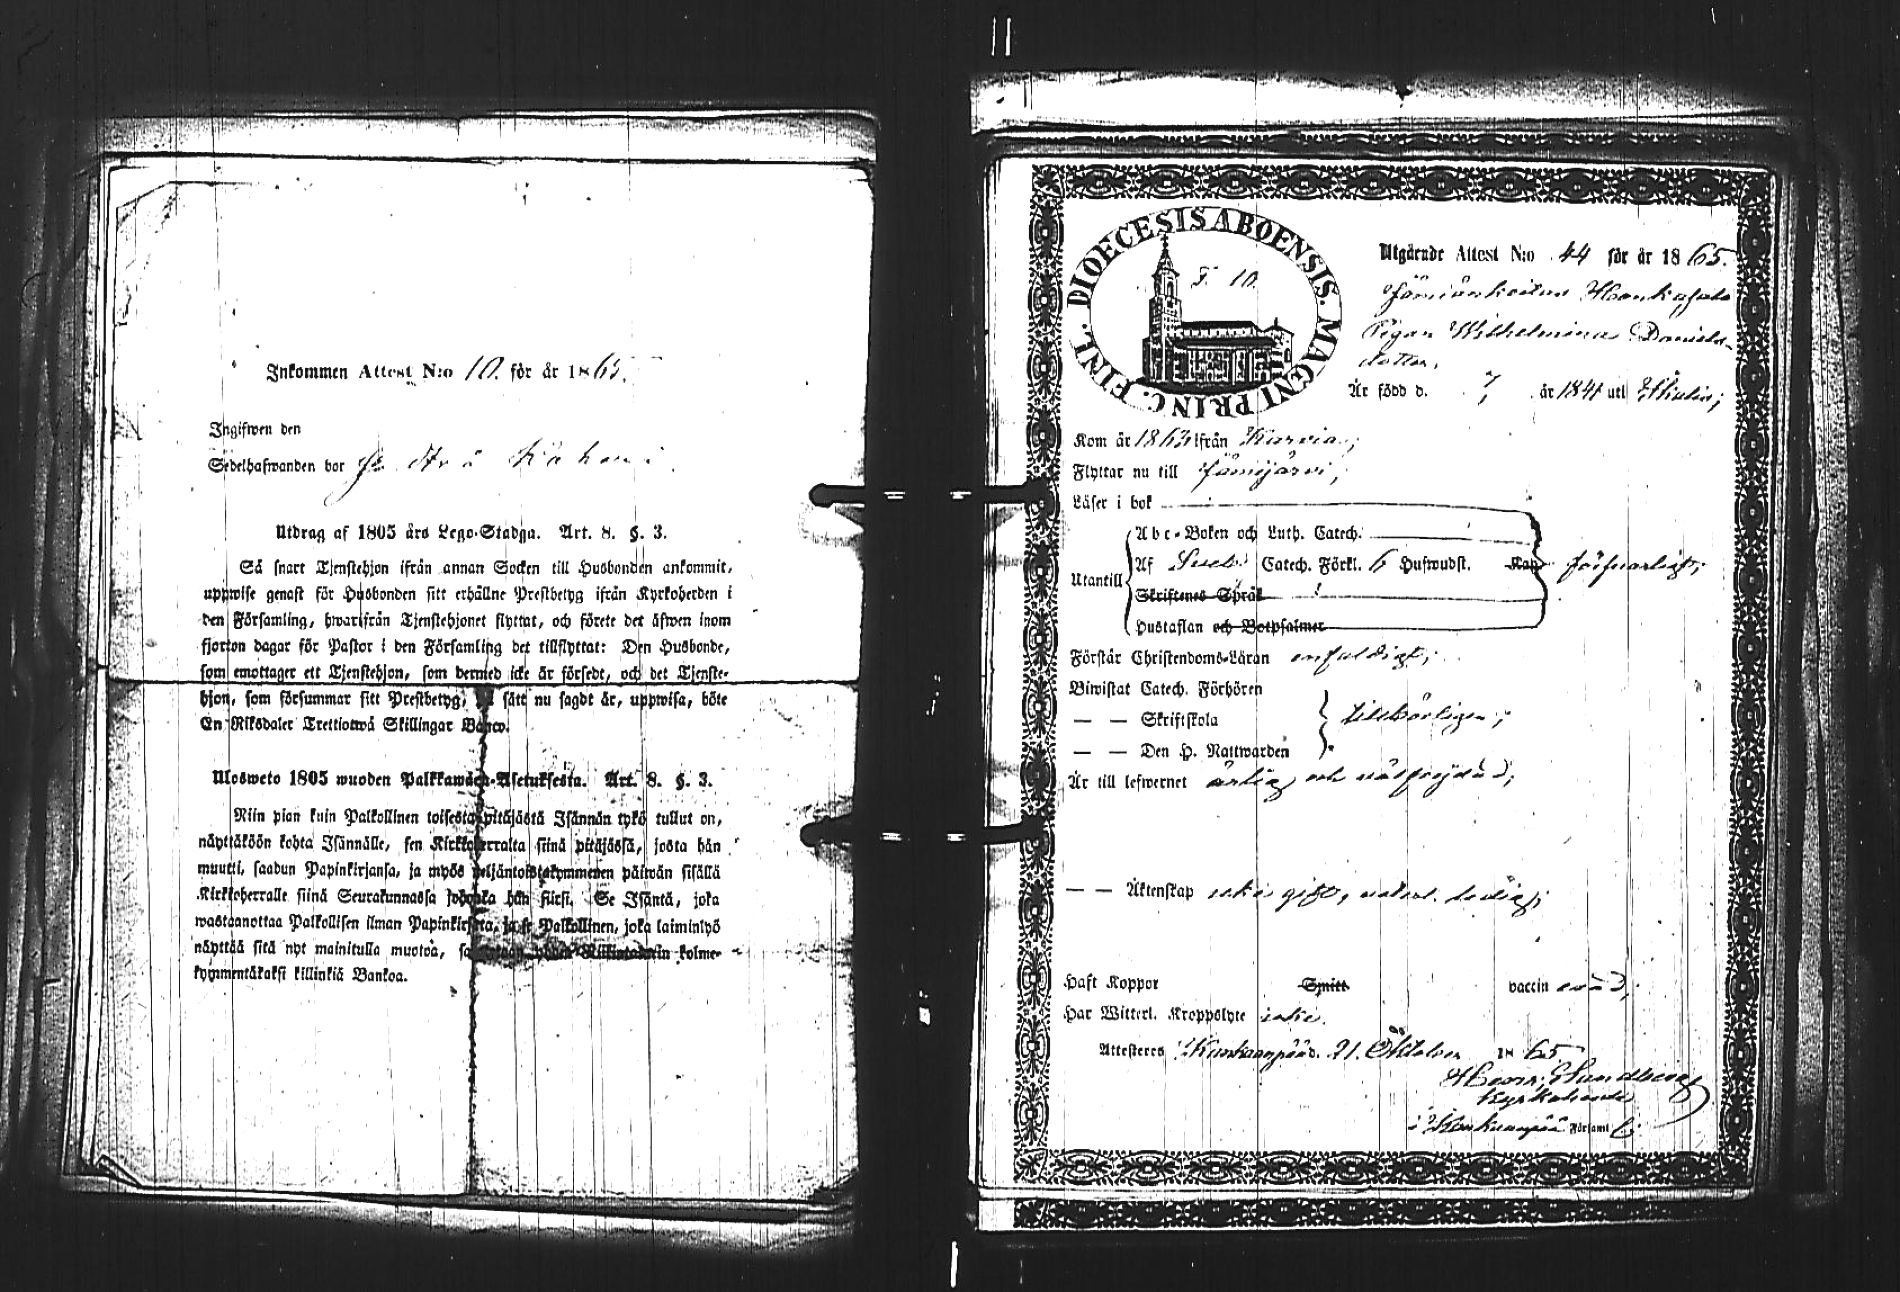 Inkommen Attest N:o 10. för år 1865.
Ingifwen den
Sedelhafwanden bor
Utdrag af 1805 års Lego-Stadga. Art. 8. §. 3.
Så snart Tjenstehjon ifrån annan Socken till Husbonden ankommit,
uppwise genast för Husbonden sitt erhållne Prestbetyg ifrån Kyrkoherden i
den Församling, hwarifrån Tjenstehjonet flyttat, och förete det äfwen inom
fjorton dagar för Pastor i den Församling det tillflyttat: Den Husbonde,
som emottager ett Tjenstehjon, som dermed icke är försedt, och det Tjenste-
hjon, som försummar sitt Prestbetyg, sätt nu sagdt är, uppwisa, böte
En Riksdaler Trettiotwå Skillingar Banco.
Ulosweto 1805 wuoden Palkkawäen-Asetuksesta. Art. 8. §. 3.
Niin pian kuin Palkollinen toisesta pitäjästä Isännän tykö tullut on,
näyttäköön kohta Isännälle, sen Kirkkoherralta siinä pitäjässä, josta hän
muutti, saadun Papinkirjansa, ja myös neljäntoistakymmenen päiwän sisällä
Kirkkoherralle siinä Seurakunnassa johonka hän siirsi. Se Isäntä, joka
wastaanottaa Palkollisen ilman Papinkirjata, ja se Palkollinen, joka laiminlyö
näyttää sitä nyt mainitulla muotoa, kolme-
kymmentäkaksi killinkiä Bankoa.
FINL. DIOECESIS ABOENSIS. MAGNI PRINC.
F. 10.
Utgående Attest N:o 44 för år 1865.
Jämiänkeitas Honkajalo
Pigan Wilhelmina Daniels-
dotter,
Är född d. 7/ år 1841 utl
Kom år 1863 ifrån Karvia;
Flyttar nu till Jämijärvi;
Läser i bok
Abc-Boken och Luth. Catech.
Utantill Af Sveb. Catech. Förkl. 6 Hufwudst. Kap försvarligt;
Skriftenes Språk
Hustaflan och Botpsalmer
Förstår Christendoms-Läran enfaldigt;
Biwistat Catech. Förhören
— — Skriftskola tillbörligen;
— — Den H. Nattwarden
Är till lefwernet ärlig och välfrejdad;
— — Äktenskap icke gift, ledig;
Haft Koppor Smitt vaccin
Har Witterl. Kroppslyte icke.
Attesteres Kankaanpää d. 21. Oktober 1865
Sundberg
Kyrkoherde
i Kankaanpää Förhaml